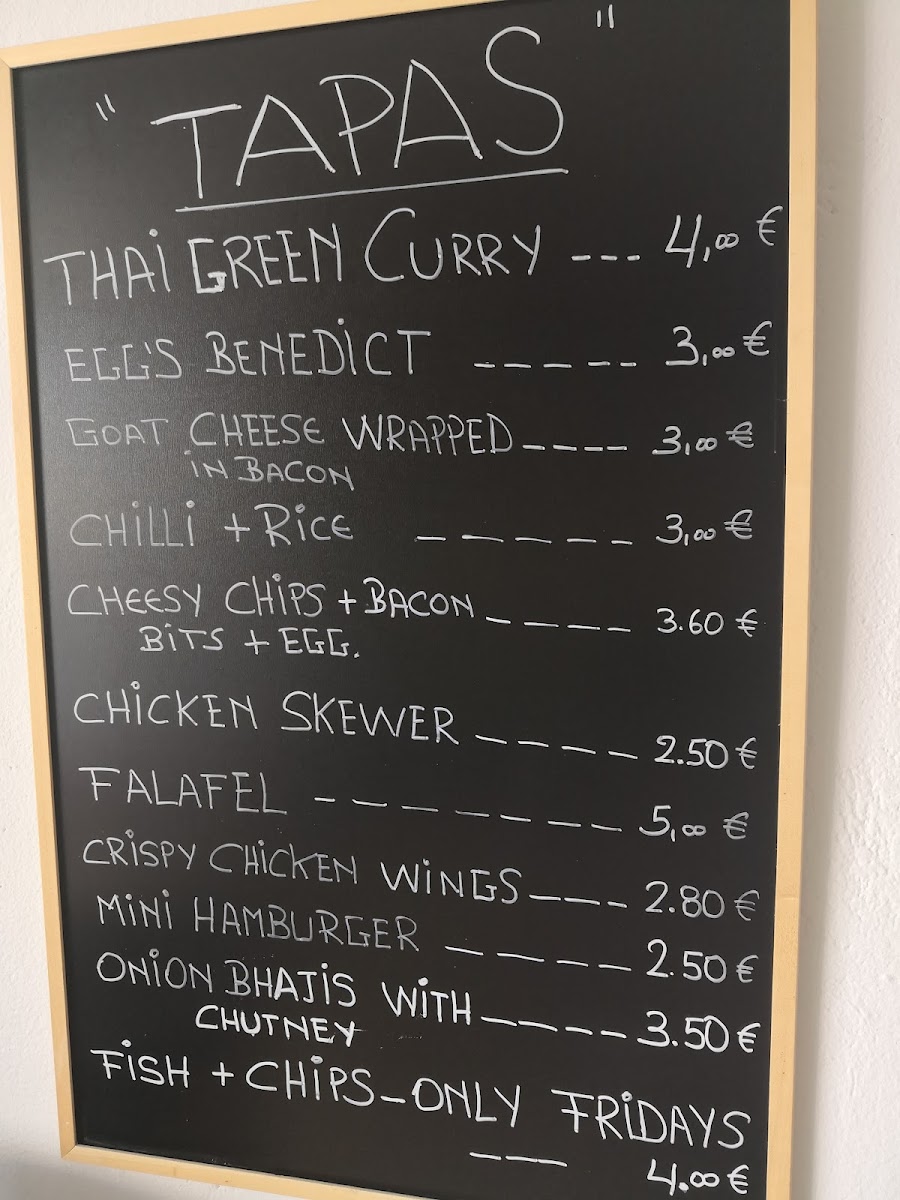 "TAPAS"
THAI GREEN CURRY --- 4,00 €
EGG'S BENEDICT ----- 3,00 €
GOAT CHEESE WRAPPED ---- 3,00 €
IN BACON
CHILLI + RICE ----- 3,00 €
CHEESY CHIPS + BACON ---- 3.60 €
BITS + EGG.
CHICKEN SKEWER ----- 2.50 €
FALAFEL -------- 5,00 €
CRISPY CHICKEN WINGS ---- 2.80 €
MINI HAMBURGER ----- 2.50 €
ONION BHAJIS WITH ----- 3.50 €
CHUTNEY
FISH + CHIPS - ONLY FRIDAYS
--- 4.00 €